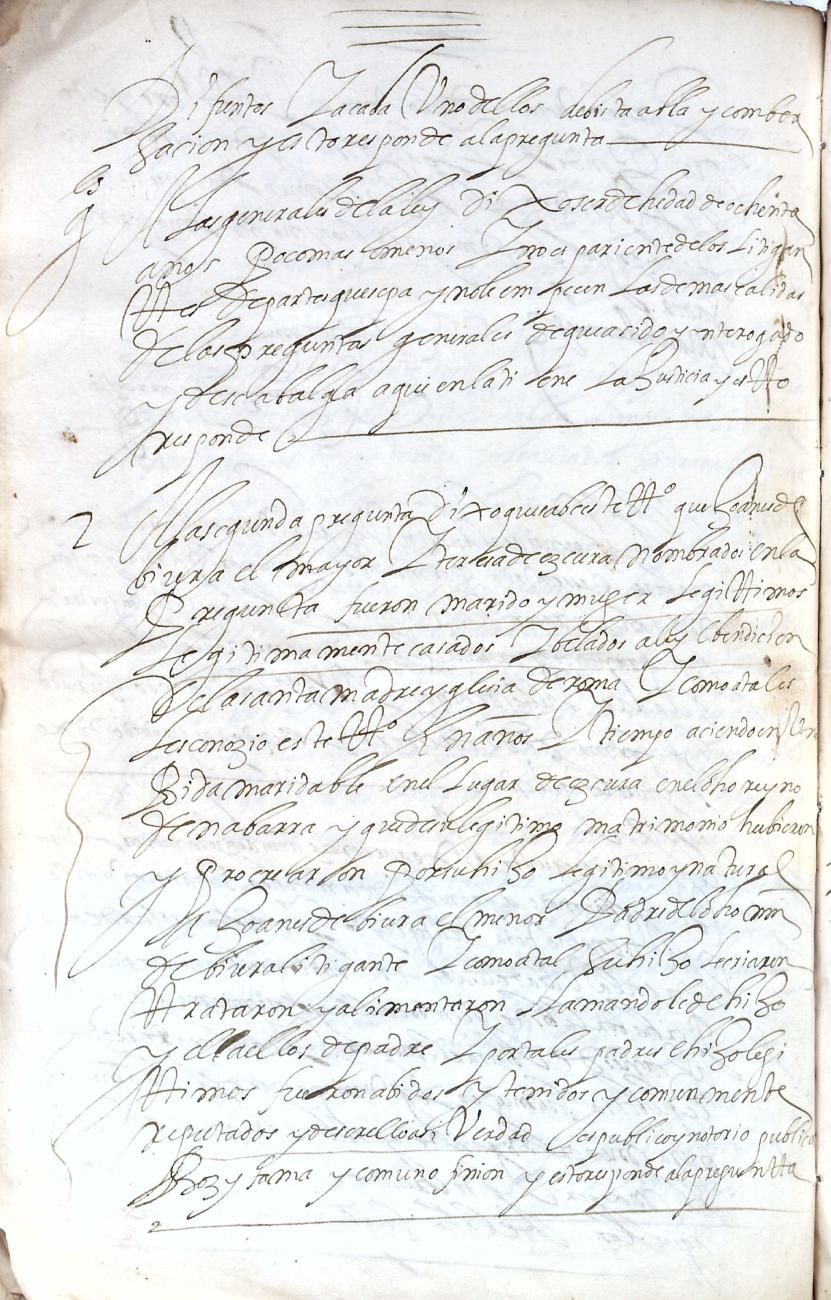 Difuntos Y acada Uno dellos debista abla y comber
sacion y esto responde alapregunta
A las generales dela ley Dixo ser de hedad de ochenta
años Poco mas omenos Y no es pariente delos Litigan
ttes departes que sepa y nole em pecen Las demas calidas
delas preguntas generales de que a sido ynterogado
y desea balga aquien la ti ene La Justicia y estto
responde
2 A la segunda pregunta Dixo que sabe este tto que Joanes de
biura el mayor Y teresa de ezcura Nombrados en la
Pregunta fueron marido y muger Legittimos
Legitimamente casados Y belados a ley E bendicion
De la santa madre yglesia de roma Y como a tales
Les conozio este tto En años Y tiempo aciendo en Un
Bida maridable en el Lugar de ezcura en el dho reyno
de nabarra y que de su legitimo matrimonio hubieron
y Procrearon Por su hijo legitimo y natural
A Joanes de biura el menor Padre del dho mn
de biura litigante Y como atal Su hijo Le criaron
ttrataron y alimentaron Llamandole de hijo
y el a ellos de padre Y por tales padres E hijo legi
ttimos fueron abidos y tenidos y comunmente
reputados y de sello asi Verdad es publico y notorio publica
Boz y fama y comun o pinion y esto responde ala preguntta